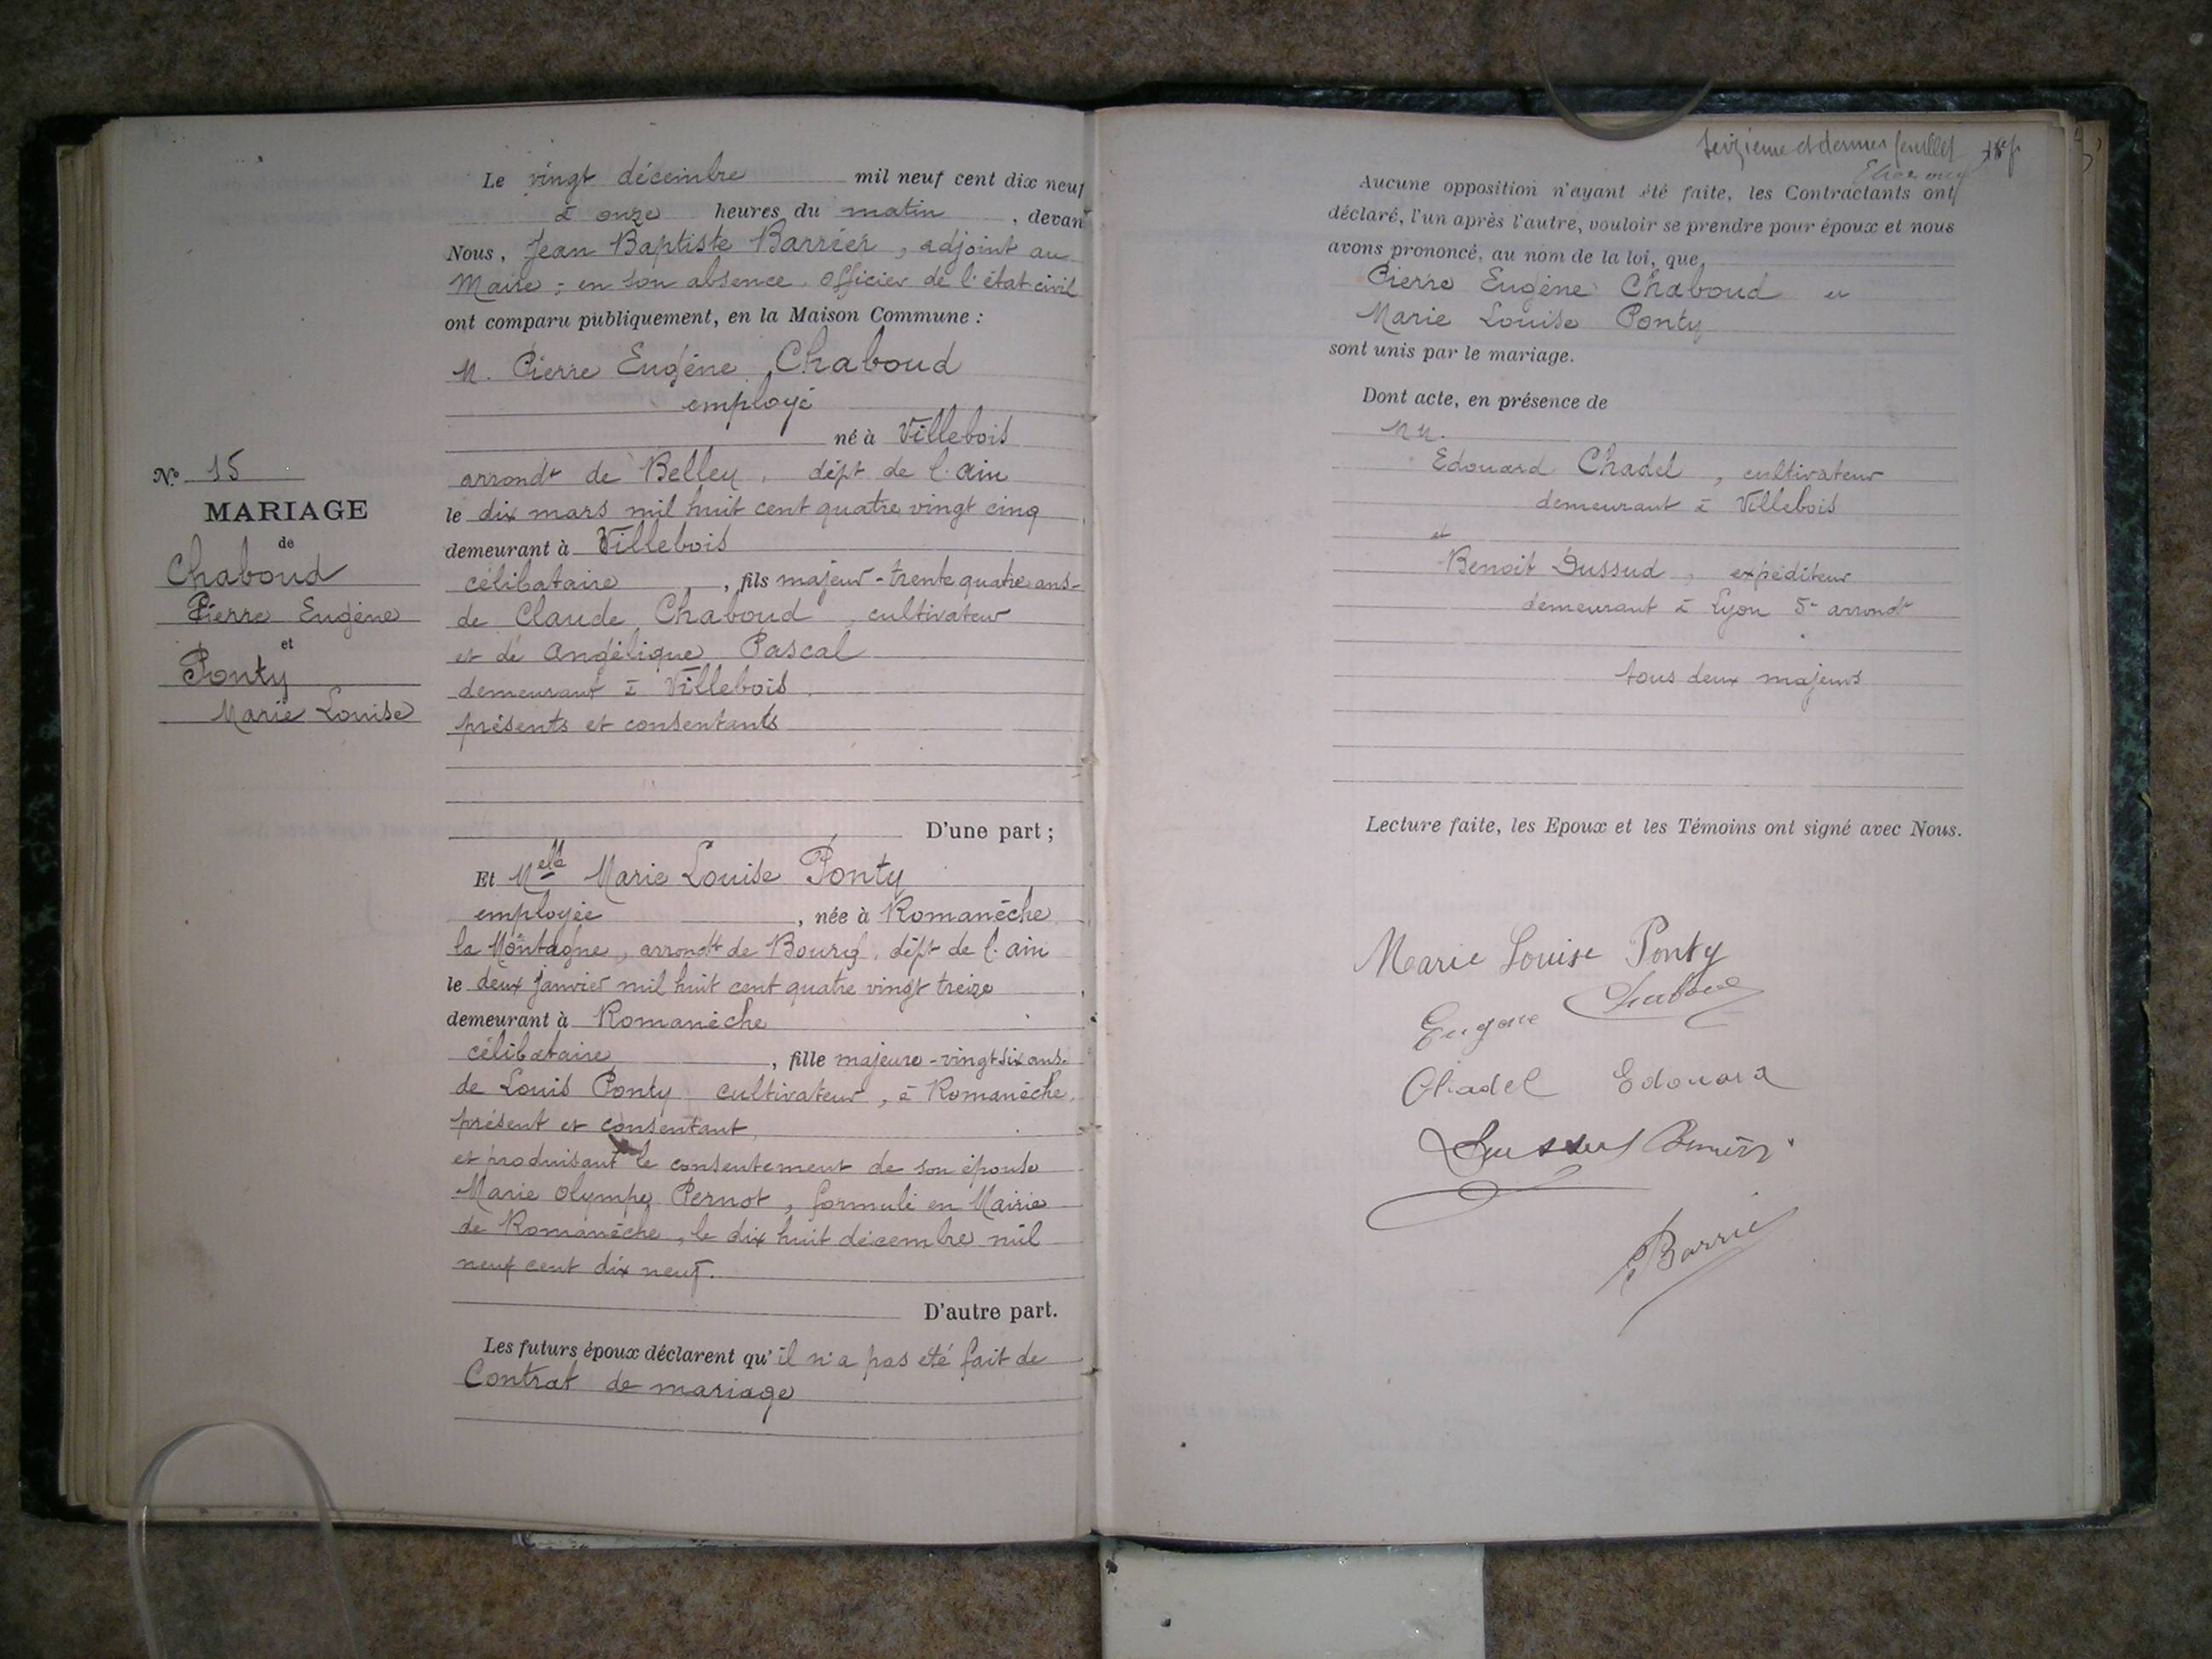 N.º 15
MARIAGE
de
Chaboud
Pierre Eugène
et
Ponty
Marie Louise
Le vingt décembre mil neuf cent dix neuf
à onze heures du matin, devant
Nous, Jean Baptiste Barrier, adjoint au
Maire, en son absence Officier de l'état civil
ont comparu publiquement, en la Maison Commune :
M. Pierre Eugène Chaboud
employé
né à Villebois
arrondt de Belley, dépt de l'ain
le dix mars mil huit cent quatre vingt cinq
demeurant à Villebois
célibataire, fils majeur - trente quatre ans -
de Claude Chaboud, cultivateur
et de Angélique Pascal
demeurant à Villebois
présents et consentants
D'une part ;
Et Melle Marie Louise Ponty
employée, née à Romanèche
la Montagne, arrondt de Bourg, dépt de l'ain
le deux janvier mil huit cent quatre vingt treize,
demeurant à Romanèche
célibataire, fille majeure - vingt six ans -
de Louis Ponty cultivateur, à Romanèche,
présent et consentant,
et produisant le consentement de son épouse
Marie Olympe Pernot, formulé en Mairie
de Romanèche, le dix huit décembre mil
neuf cent dix neuf.
D'autre part.
Les futurs époux déclarent qu'il n'a pas été fait de
Contrat de mariage
seizième et dernier feuillet
Aucune opposition n'ayant été faite, les Contractants ont
déclaré, l'un après l'autre, vouloir se prendre pour époux et nous
avons prononcé, au nom de la loi, que
Pierre Eugène Chaboud et
Marie Louise Ponty
sont unis par le mariage.
Dont acte, en présence de
MM.
Edouard Chadel, cultivateur
demeurant à Villebois
et
Benoit Dussud, expéditeur
demeurant à Lyon 5e arrondt
tous deux majeurs
Lecture faite, les Epoux et les Témoins ont signé avec Nous.
Marie Louise Ponty
Eugène Chaboud
Chadel Edouard
Dussud Benoit
Barrier